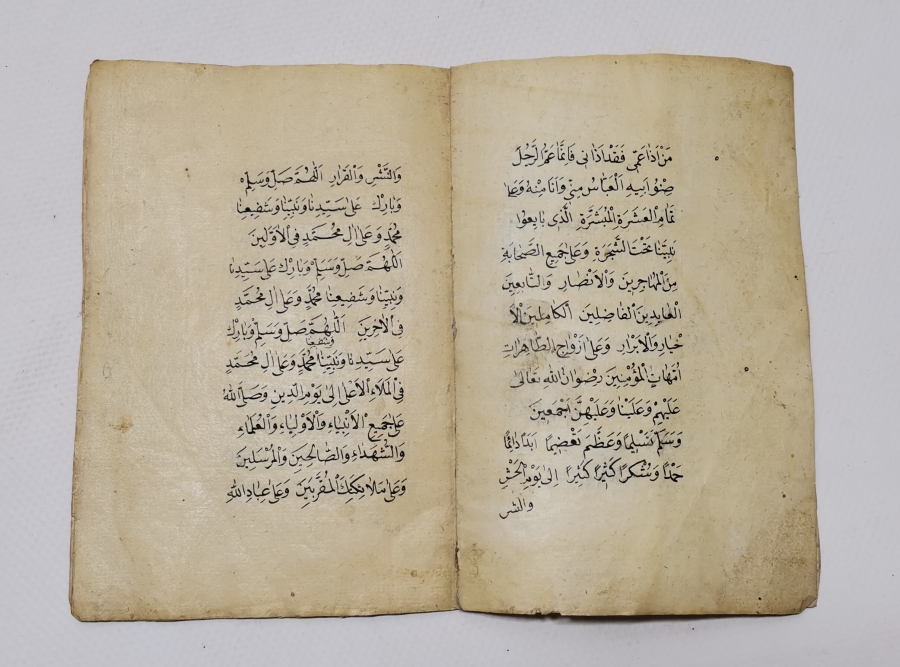 مَنْ اٰذَا عَمِّي فَقَدْ اٰذَانِي فَاِنَّمَا عَمُّ الرَّجُلِ
صِنْوُ اَبِيهِ الْعَبَّاسُ مِنِّي وَاَنَا مِنْهُ وَعَلٰى
تَمَامِ الْعَشَرَةِ الْمُبَشَّرَةِ الَّذِي بَايَعُوا
نَبِيَّنَا تَحْتَ الشَّجَرَةِ وَعَلٰى جَمِيعِ الصَّحَابَةِ
مِنَ الْمُهَاجِرِينَ وَالْاَنْصَارِ وَالتَّابِعِينَ
الْعَابِدِينَ الْفَاضِلِينَ الْكَامِلِينَ الْاَ
خْيَارِ وَالْاَبْرَارِ وَعَلٰى اَزْوَاجِ الطَّاهِرَاتِ
اُمَّهَاتِ الْمُؤْمِنِينَ رِضْوَانُ اللّٰهِ تَعَالٰى
عَلَيْهِمْ وَعَلَيْنَا وَعَلَيْهِنَّ اَجْمَعِينَ
وَسَلَّمَ تَسْلِيمًا وَعَظَّمَ تَعْضِيمًا اَبَدًا دَائِمًا
حَمْدًا وَشُكْرًا كَثِيرًا كَثِيرًا اِلٰى يَوْمِ الْحَشْرِ
والنشر
وَالنَّشْرِ وَالْقَرَارِ اَللّٰهُمَّ صَلِّ وَسَلِّمْ
وَبَارِكْ عَلٰى سَيِّدِنَا وَنَبِيِّنَا وَشَفِيعِنَا
مُحَمَّدٍ وَعَلٰى اٰلِ مُحَمَّدٍ فِي الْاَوَّلِينَ
اَللّٰهُمَّ صَلِّ وَسَلِّمْ وَبَارِكْ عَلٰى سَيِّدِنَا
وَنَبِيِّنَا وَشَفِيعِنَا مُحَمَّدٍ وَعَلٰى اٰلِ مُحَمَّدٍ
فِي الْاٰخِرِينَ اَللّٰهُمَّ صَلِّ وَسَلِّمْ وَبَارِكْ
وشفيعنا
عَلٰى سَيِّدِنَا وَنَبِيِّنَا مُحَمَّدٍ وَعَلٰى اٰلِ مُحَمَّدٍ
فِي الْمَلَاءِ الْاَعْلٰى اِلٰى يَوْمِ الدِّينِ وَصَلَّى اللّٰهُ
عَلٰى جَمِيعِ الْاَنْبِيَاءِ وَالْاَوْلِيَاءِ وَالْعُلَمَاءِ
وَالشُّهَدَاءِ وَالصَّالِحِينَ وَالْمُرْسَلِينَ
وَعَلٰى مَلَائِكَتِكَ الْمُقَرَّبِينَ وَعَلٰى عِبَادِ اللّٰهِ